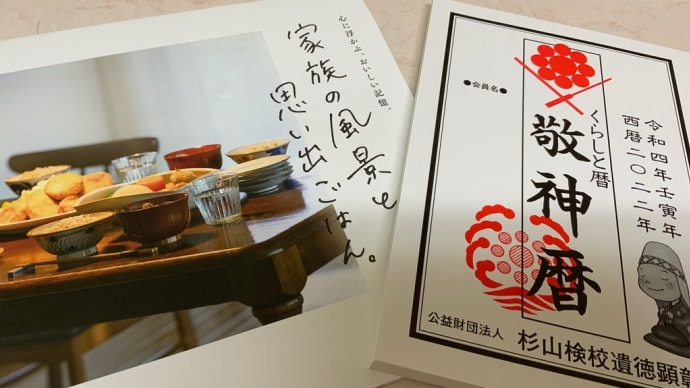 心に浮かぶ、おいしい記憶。
家族の風景と
思い出ごはん。
●会員名●
くらしと暦
敬神暦
令和四年壬寅年
西暦二〇二二年
公益財団法人 杉山検校遺徳顕